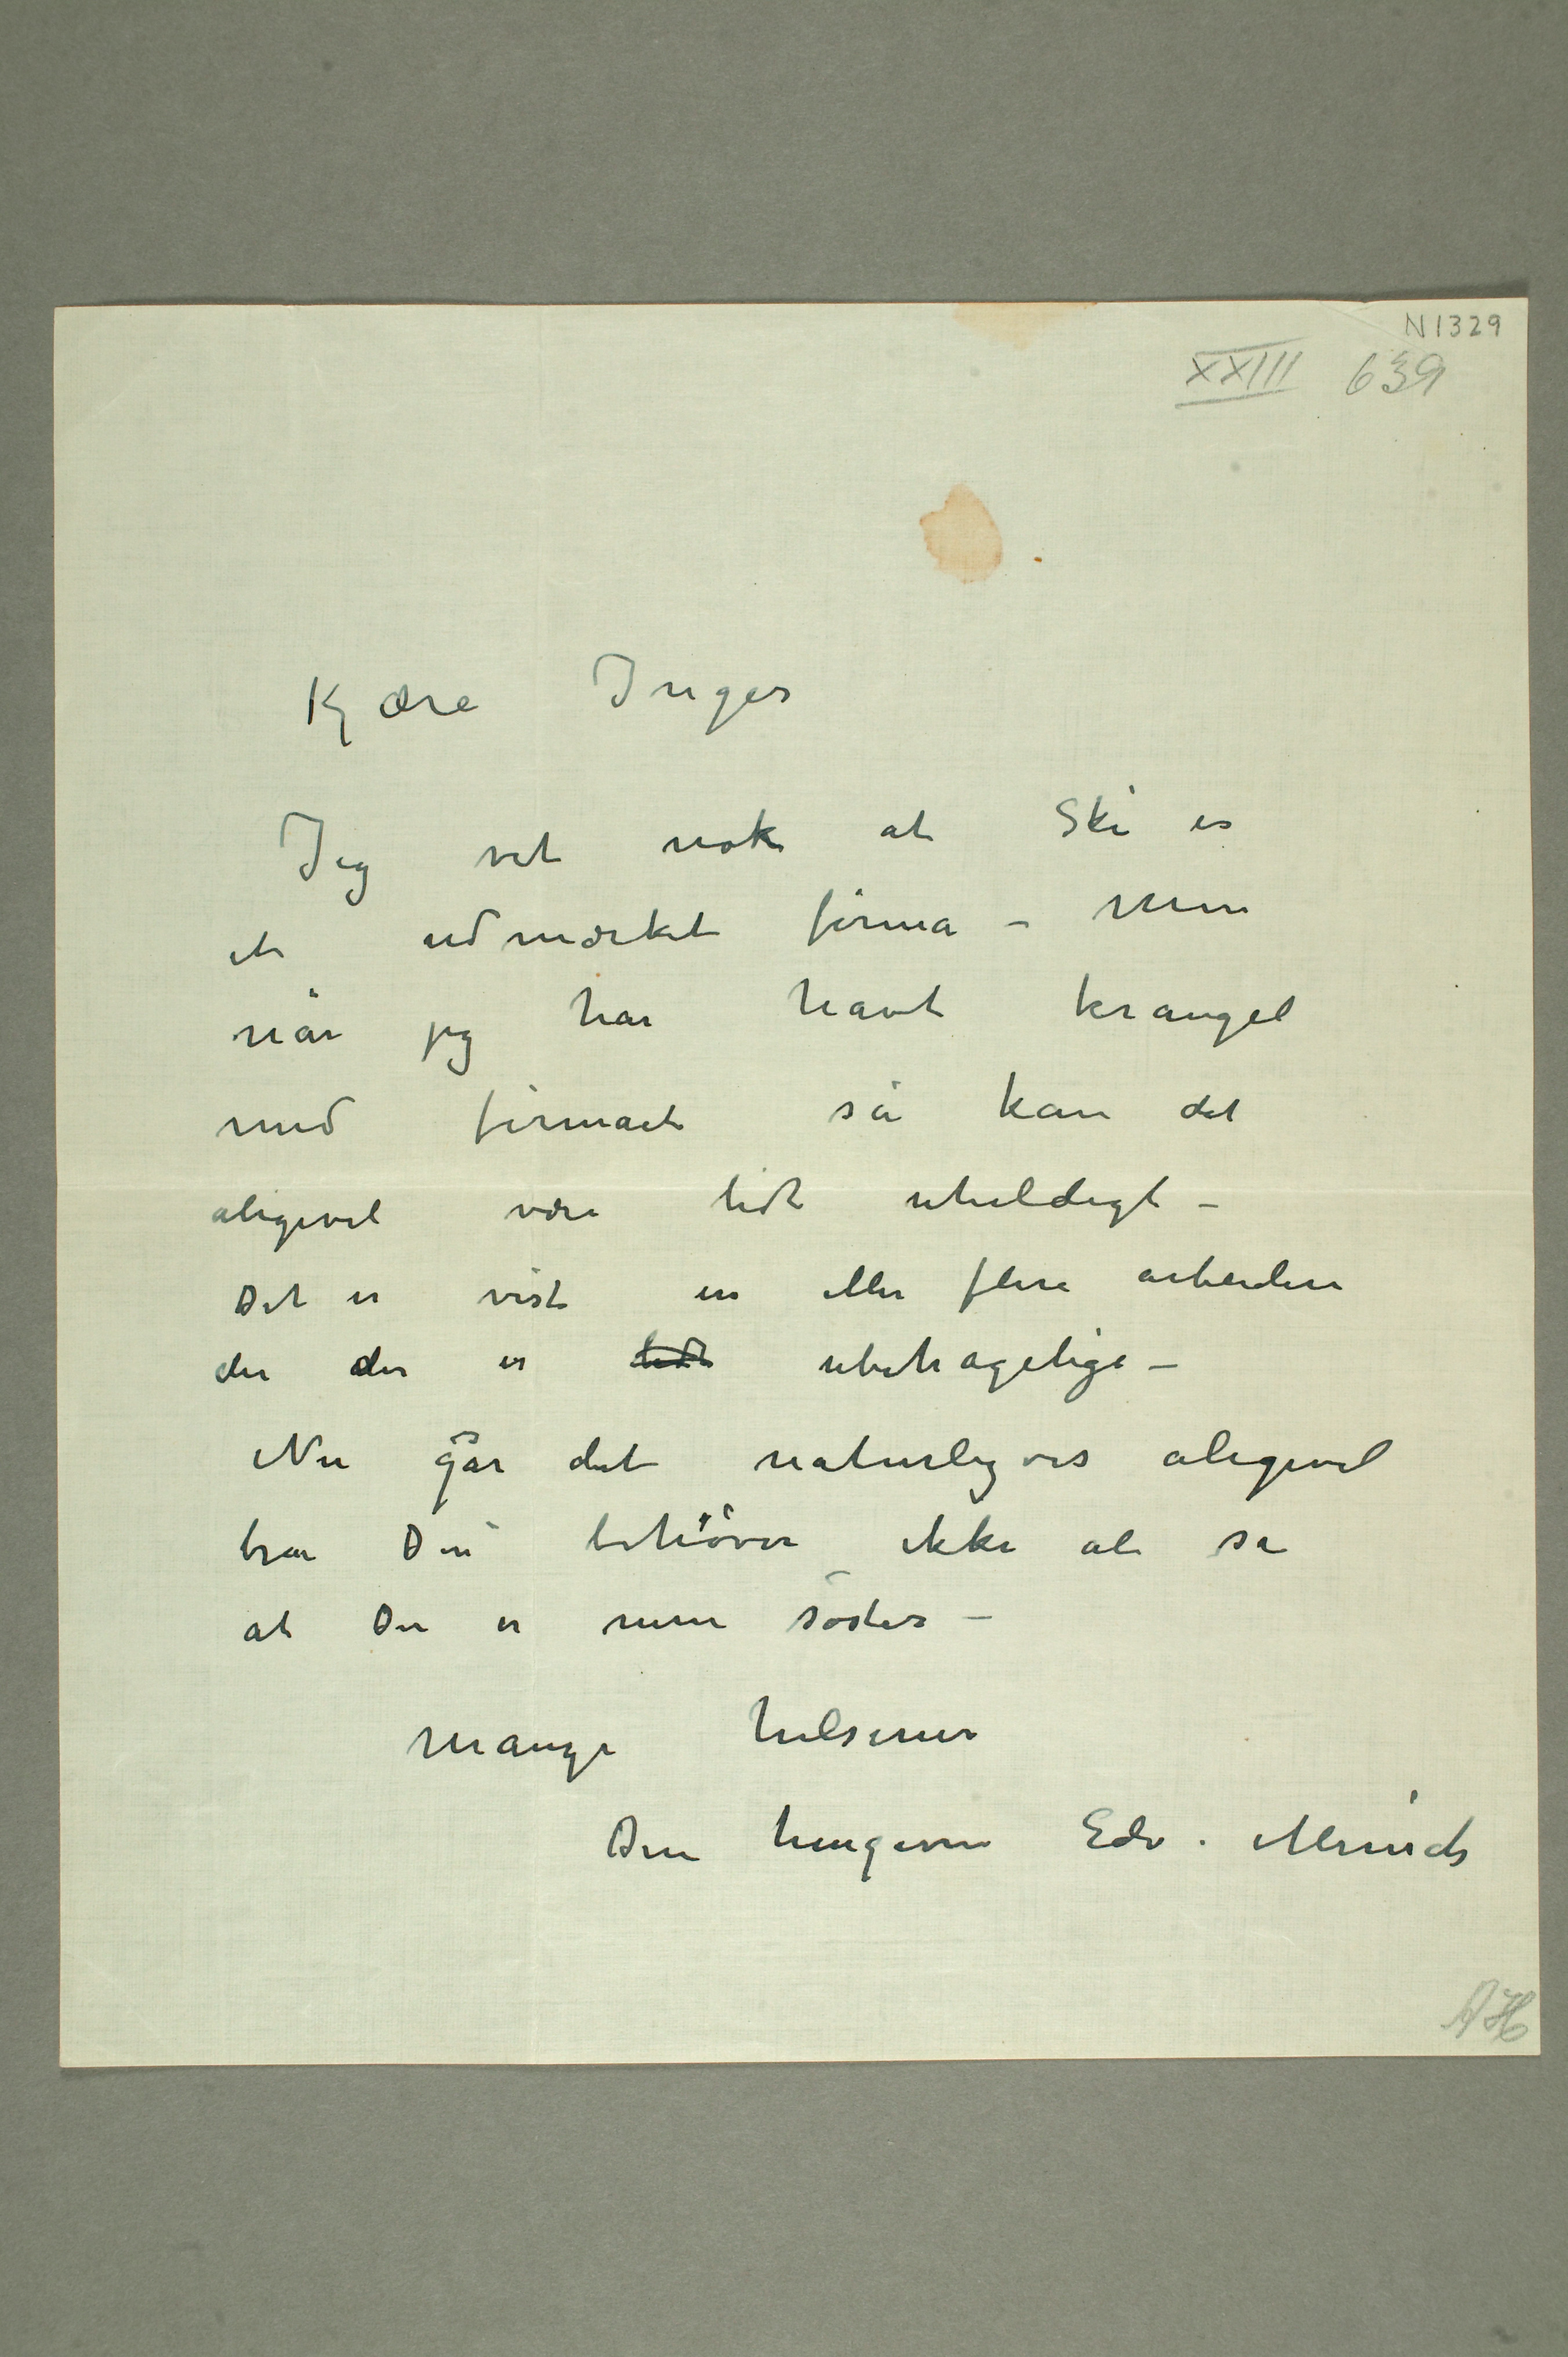 N 1329
XXIII 639
Kjære Inger
Jeg vet nok at Ski er
et udmærket firma – Men
når jeg har havt krangel
med firmaet så kan det
aligevel være lidt uheldigt –
Det er vist en eller flere arbeidere
der der er lidt ubehagelige –
Nu går det naturligvis aligevel
bra Du behöver ikke at si
at Du er min söster –
Mange hilsener
Din hengivne Edv. Munch
AH